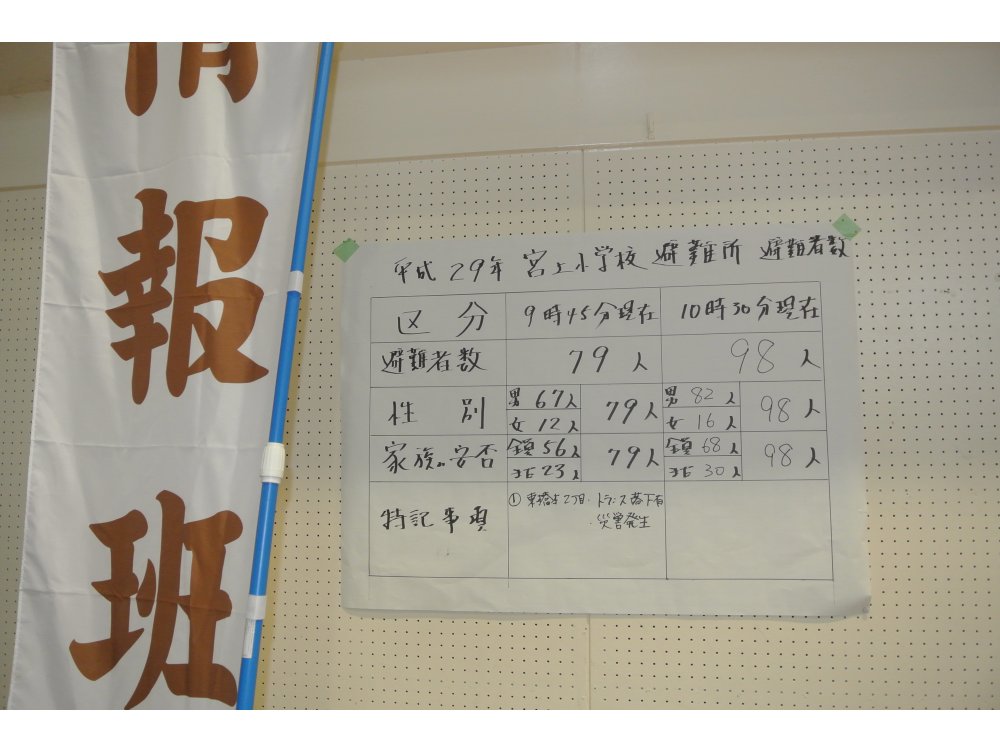 情報班
平成29年 宮上小学校 避難所 避難者数
区分 9時45分現在 10時30分現在
避難者数 79人 98人
性別 男 67人 79人 男 82人 98人
女 12人 女 16人
家族の安否 全員 56人 79人 全員 68人 98人
非 23人 非 30人
特記事項 ① 東橋本2丁目・トランス落下有
・災害発生